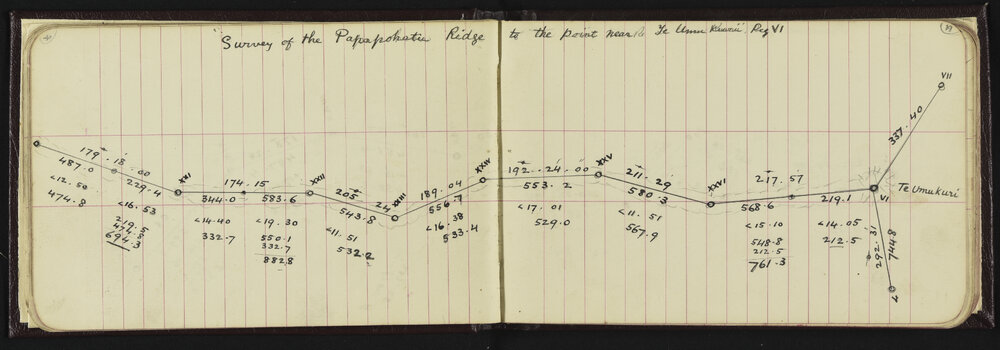 Survey of the Papapohatu Ridge to the point near Te Umu Kuri Peg VI
VII
337.40
179.18.00
487.0
229.4
<12.50
474.8
<16.53
219.5
474.8
694.3
XXI
174.15
344.0
583.6
<14.40
332.7
<19.30
550.1
332.7
882.8
XXII
205
24
543.8
<11.51
532.2
XXIII
189.04
556.7
<16.38
533.4
XXIV
192.24.00
553.2
<17.01
529.0
XXV
211.29
580.3
<11.51
567.9
XXVI
217.57
568.6
219.1
<15.10
548.8
212.5
761.3
<14.05
212.5
VI
Te Umukuri
292.31
744.8
V